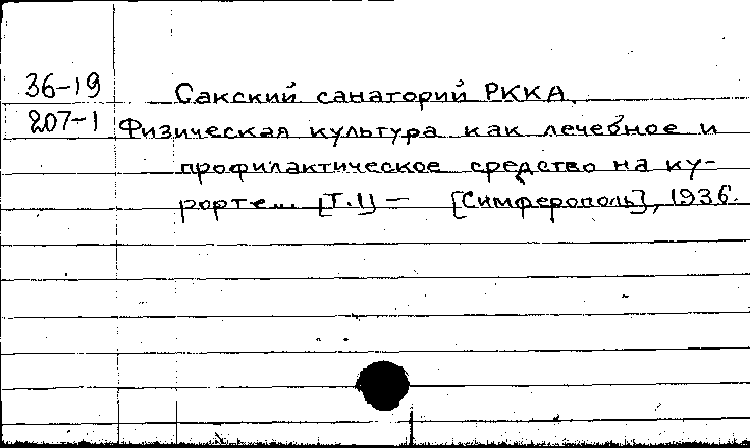 36-19
Сакский санаторий РККА.
207-1
Физическая культура как лечебное и
профилактическое средство на ку-
рорте... [Т.1] — [Симферополь], 1936.